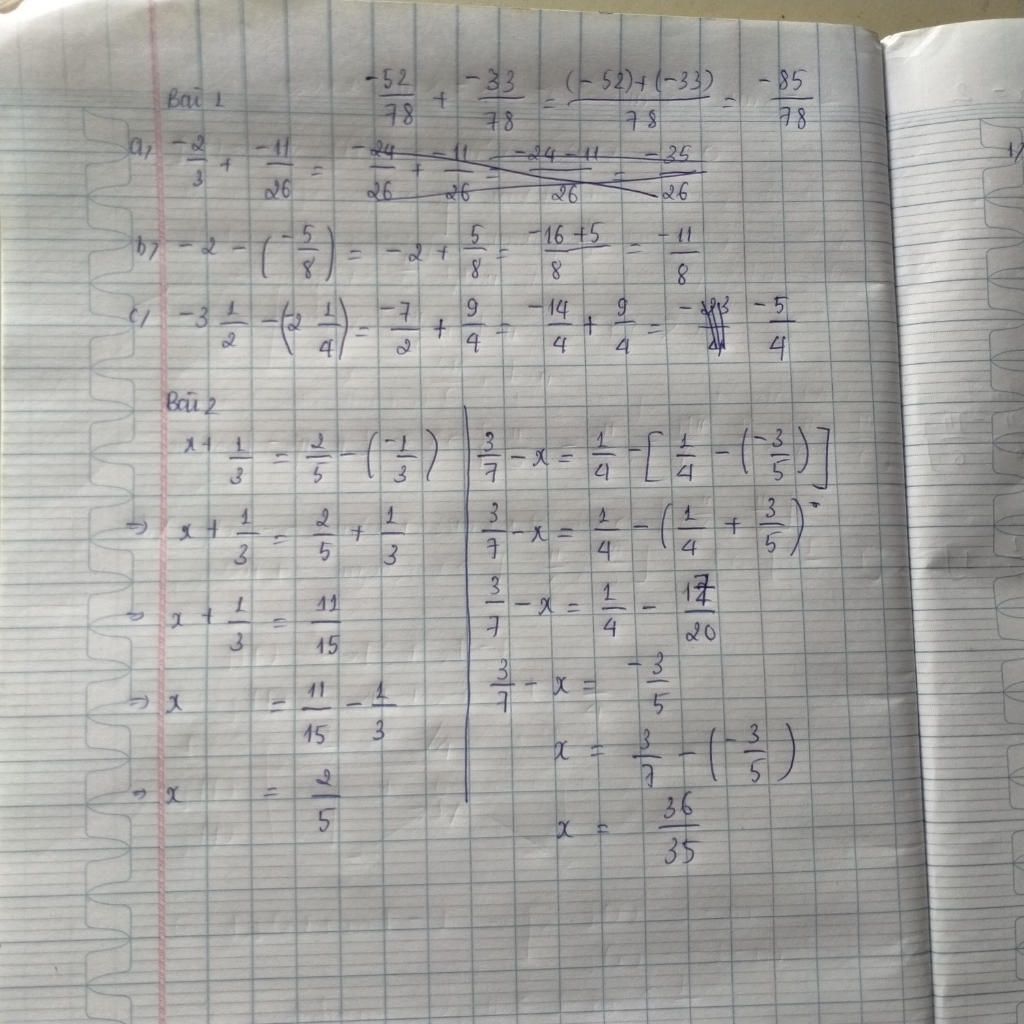 Bài 1
-52/78 + -33/78 = (-52)+(-33)/78 = -85/78
a, -2/3 + -11/26 = -24/26 + -11/26 = -24-11/26 = -35/26
b, -2 - (-5/8) = -2 + 5/8 = -16+5/8 = -11/8
c, -3 1/2 - (-2 1/4) = -7/2 + 9/4 = -14/4 + 9/4 = - -5/4
Bài 2
x + 1/3 = 2/5 - (-1/3)
⇒ x + 1/3 = 2/5 + 1/3
⇒ x + 1/3 = 11/15
⇒ x = 11/15 - 1/3
⇒ x = 2/5
3/7 - x = 1/4 - [1/4 - (-3/5)]
3/7 - x = 1/4 - (1/4 + 3/5)
3/7 - x = 1/4 - 17/20
3/7 - x = -3/5
x = 3/7 - (-3/5)
x = 36/35
1)